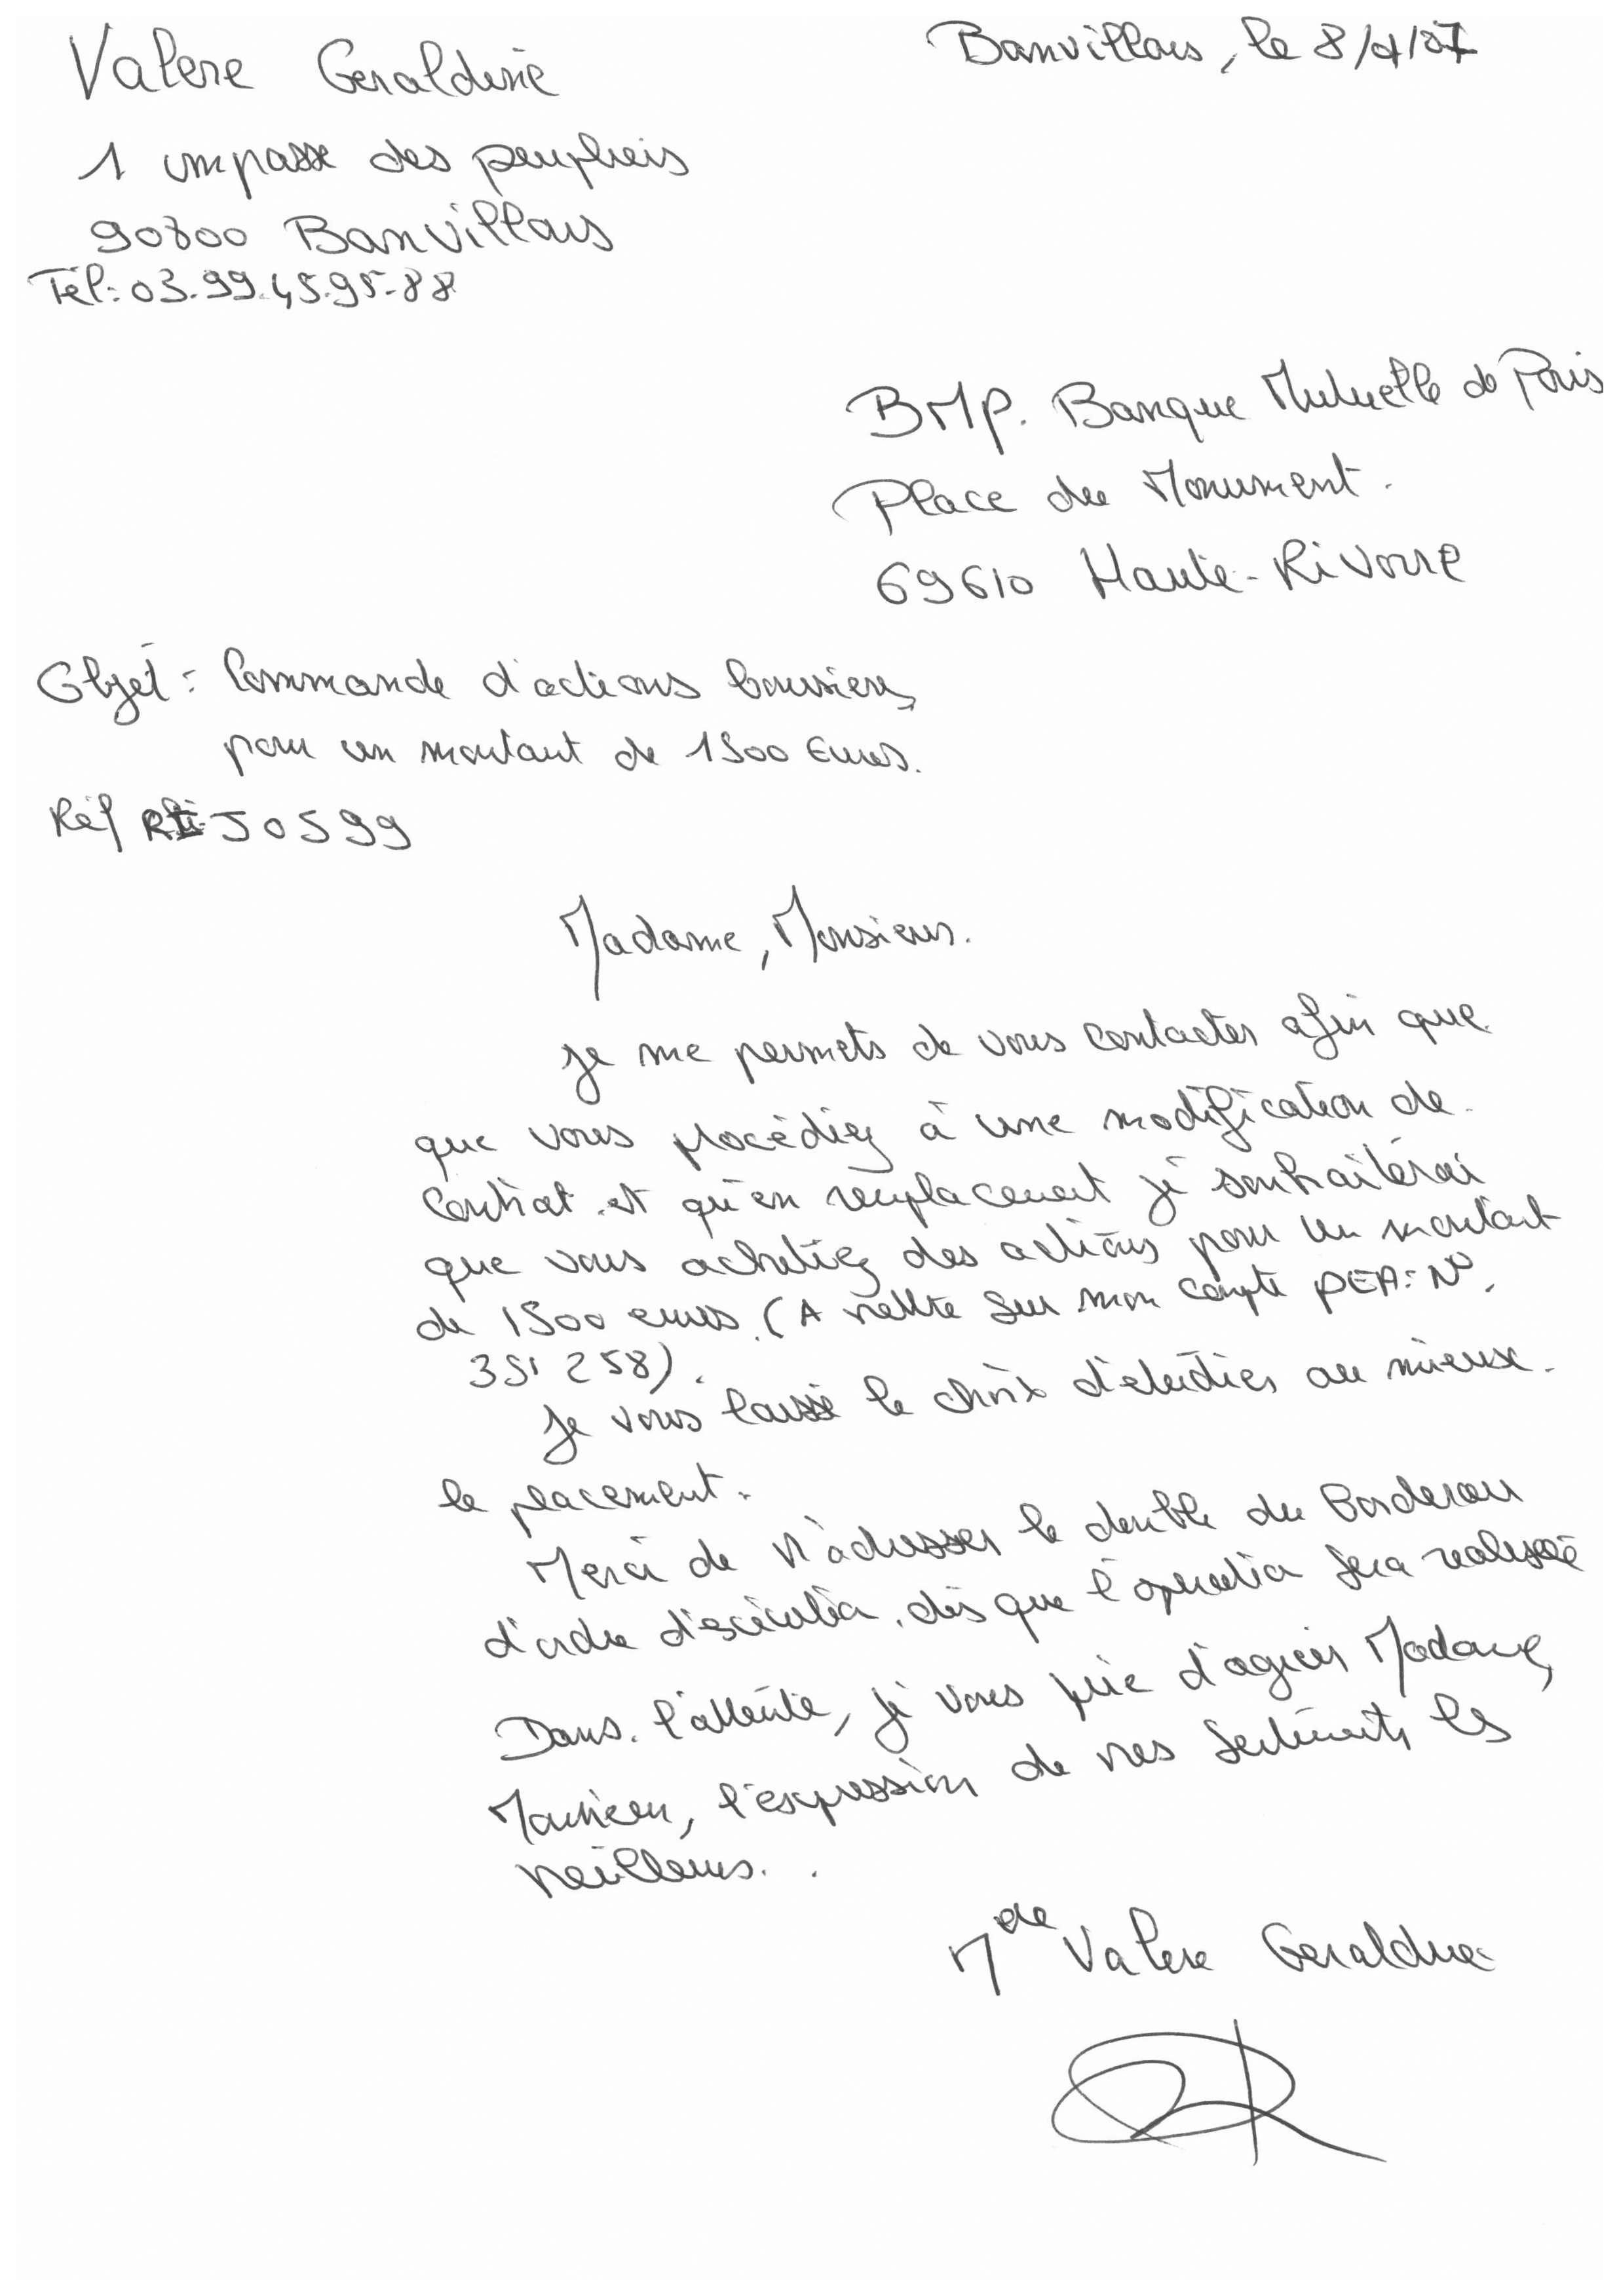 Valere Geraldine
Banvillars, le 8/4/07
1 impasse des peupliers
90800 Banvillars
Tél: 03.99.45.95.88
BMP. Banque Mutuelle de Paris
Place du Monument.
69610 Haute-Rivoire
Objet: Commande d'actions boursieres
pour un montant de 1500 Euros.
Réf 50599
Madame, Monsieur.
je me permets de vous contacter afin que
que vous procédiez à une modification de
contrat et qu'en remplacement je souhaiterai
que vous achetiez des actions pour un montant
de 1500 euros. (A mettre sur mon compte PEA: N°.
351 258).
Je vous laisse le choix d'étudier au mieux
le placement.
Merci de m'adresser le double du Bordereau
d'ordre d'exécution, dès que l'opération sera realisée
Dans l'attente, je vous prie d'agréer Madame,
Monsieur, l'expression de mes sentiments les
meilleurs.
Mde Valere Geraldine